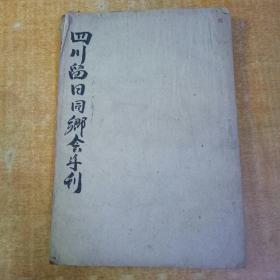 四川留日同鄉会年刊